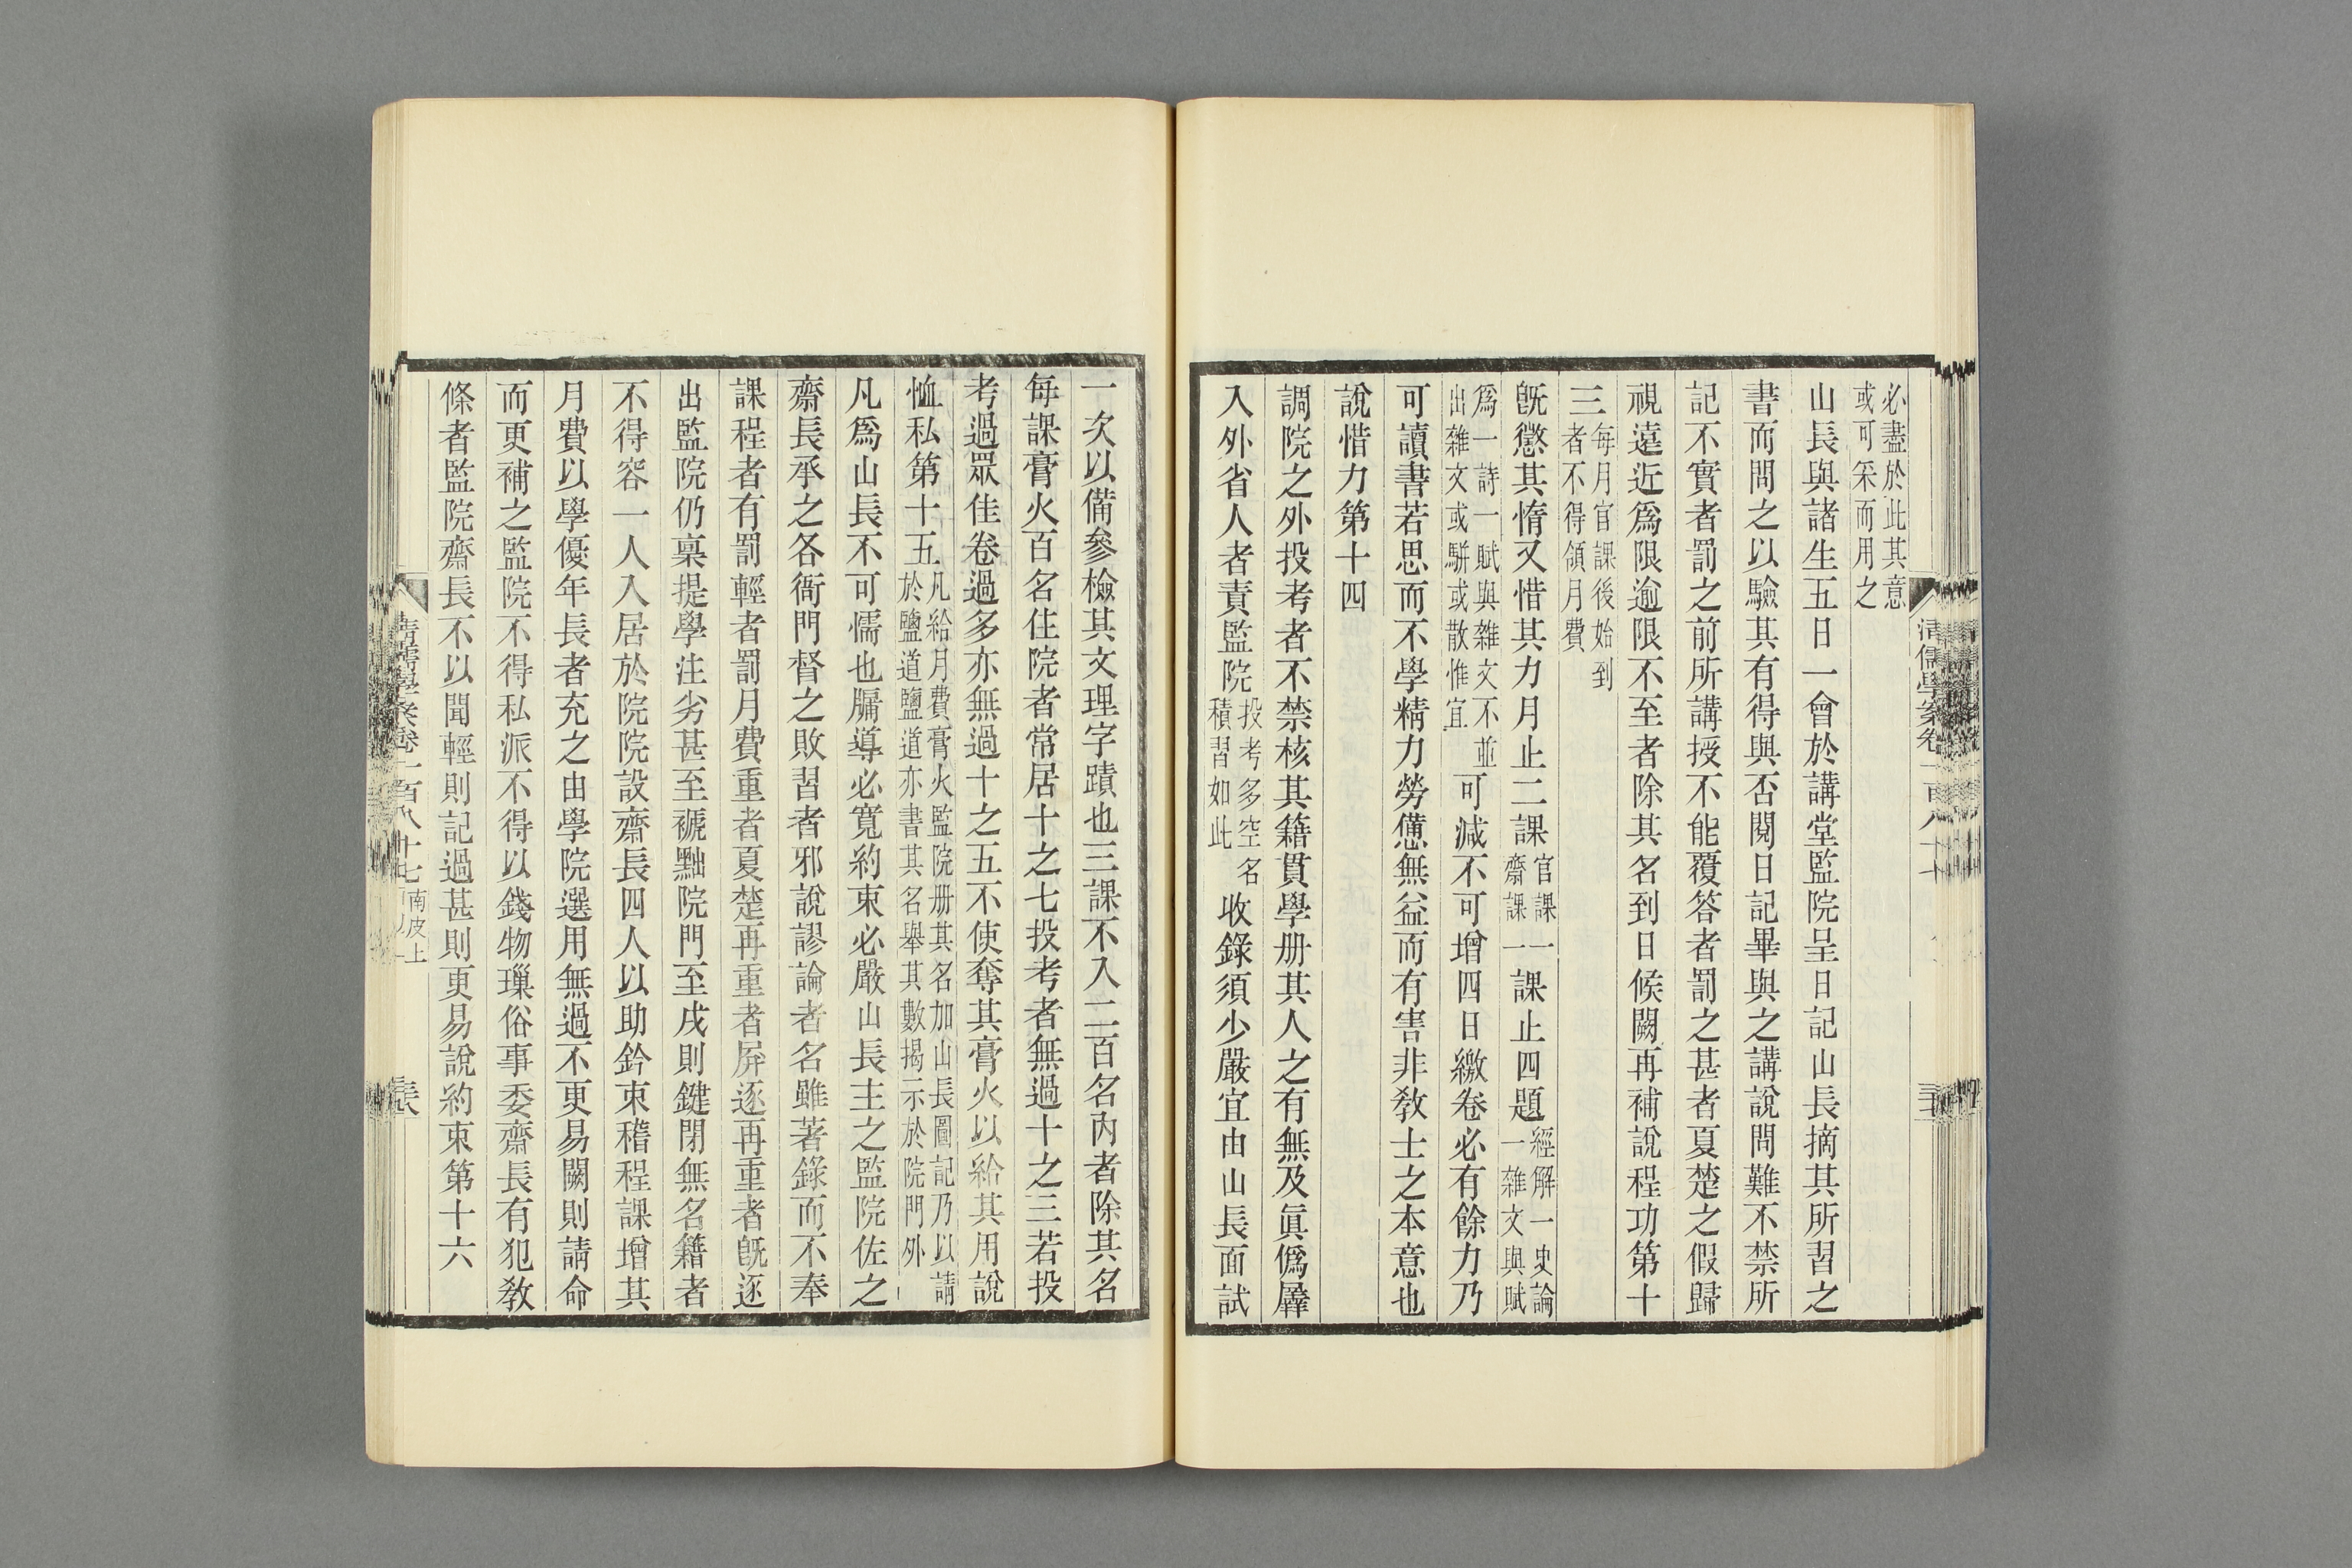 必盡於此其意
或可采而用之
山長與諸生五日一會於講堂監院呈日記山長摘其所習之
書而問之以驗其有得與否閱日記畢與之講說問難不禁所
記不實者罰之前所講授不能覆答者罰之甚者夏楚之假歸
視遠近爲限逾限不至者除其名到日候闕再補說程功第十
三每月官課後始到
者不得領月費
旣懲其惰又惜其力月止二課官課一
齋課一課止四題經解一史論
一雜文與賦
爲一詩一賦與雜文不並
出雜文或駢或散惟宜可減不可增四日繳卷必有餘力乃
可讀書若思而不學精力勞憊無益而有害非敎士之本意也
說惜力第十四
調院之外投考者不禁核其籍貫學册其人之有無及眞僞羼
入外省人者責監院投考多空名
積習如此收錄須少嚴宜由山長面試
一次以備參檢其文理字蹟也三課不入二百名內者除其名
每課膏火百名住院者常居十之七投考者無過十之三若投
考過眾佳卷過多亦無過十之五不使奪其膏火以給其用說
恤私第十五凡給月費膏火監院册其名加山長圖記乃以請
於鹽道鹽道亦書其名舉其數揭示於院門外
凡爲山長不可懦也牖導必寬約束必嚴山長主之監院佐之
齋長承之各衙門督之敗習者邪說謬論者名雖著錄而不奉
課程者有罰輕者罰月費重者夏楚再重者屏逐再重者旣逐
出監院仍稟提學注劣甚至褫黜院門至戌則鍵閉無名籍者
不得容一人入居於院院設齋長四人以助鈐束稽程課增其
月費以學優年長者充之由學院選用無過不更易闕則請命
而更補之監院不得私派不得以錢物璅俗事委齋長有犯敎
條者監院齋長不以聞輕則記過甚則更易說約束第十六